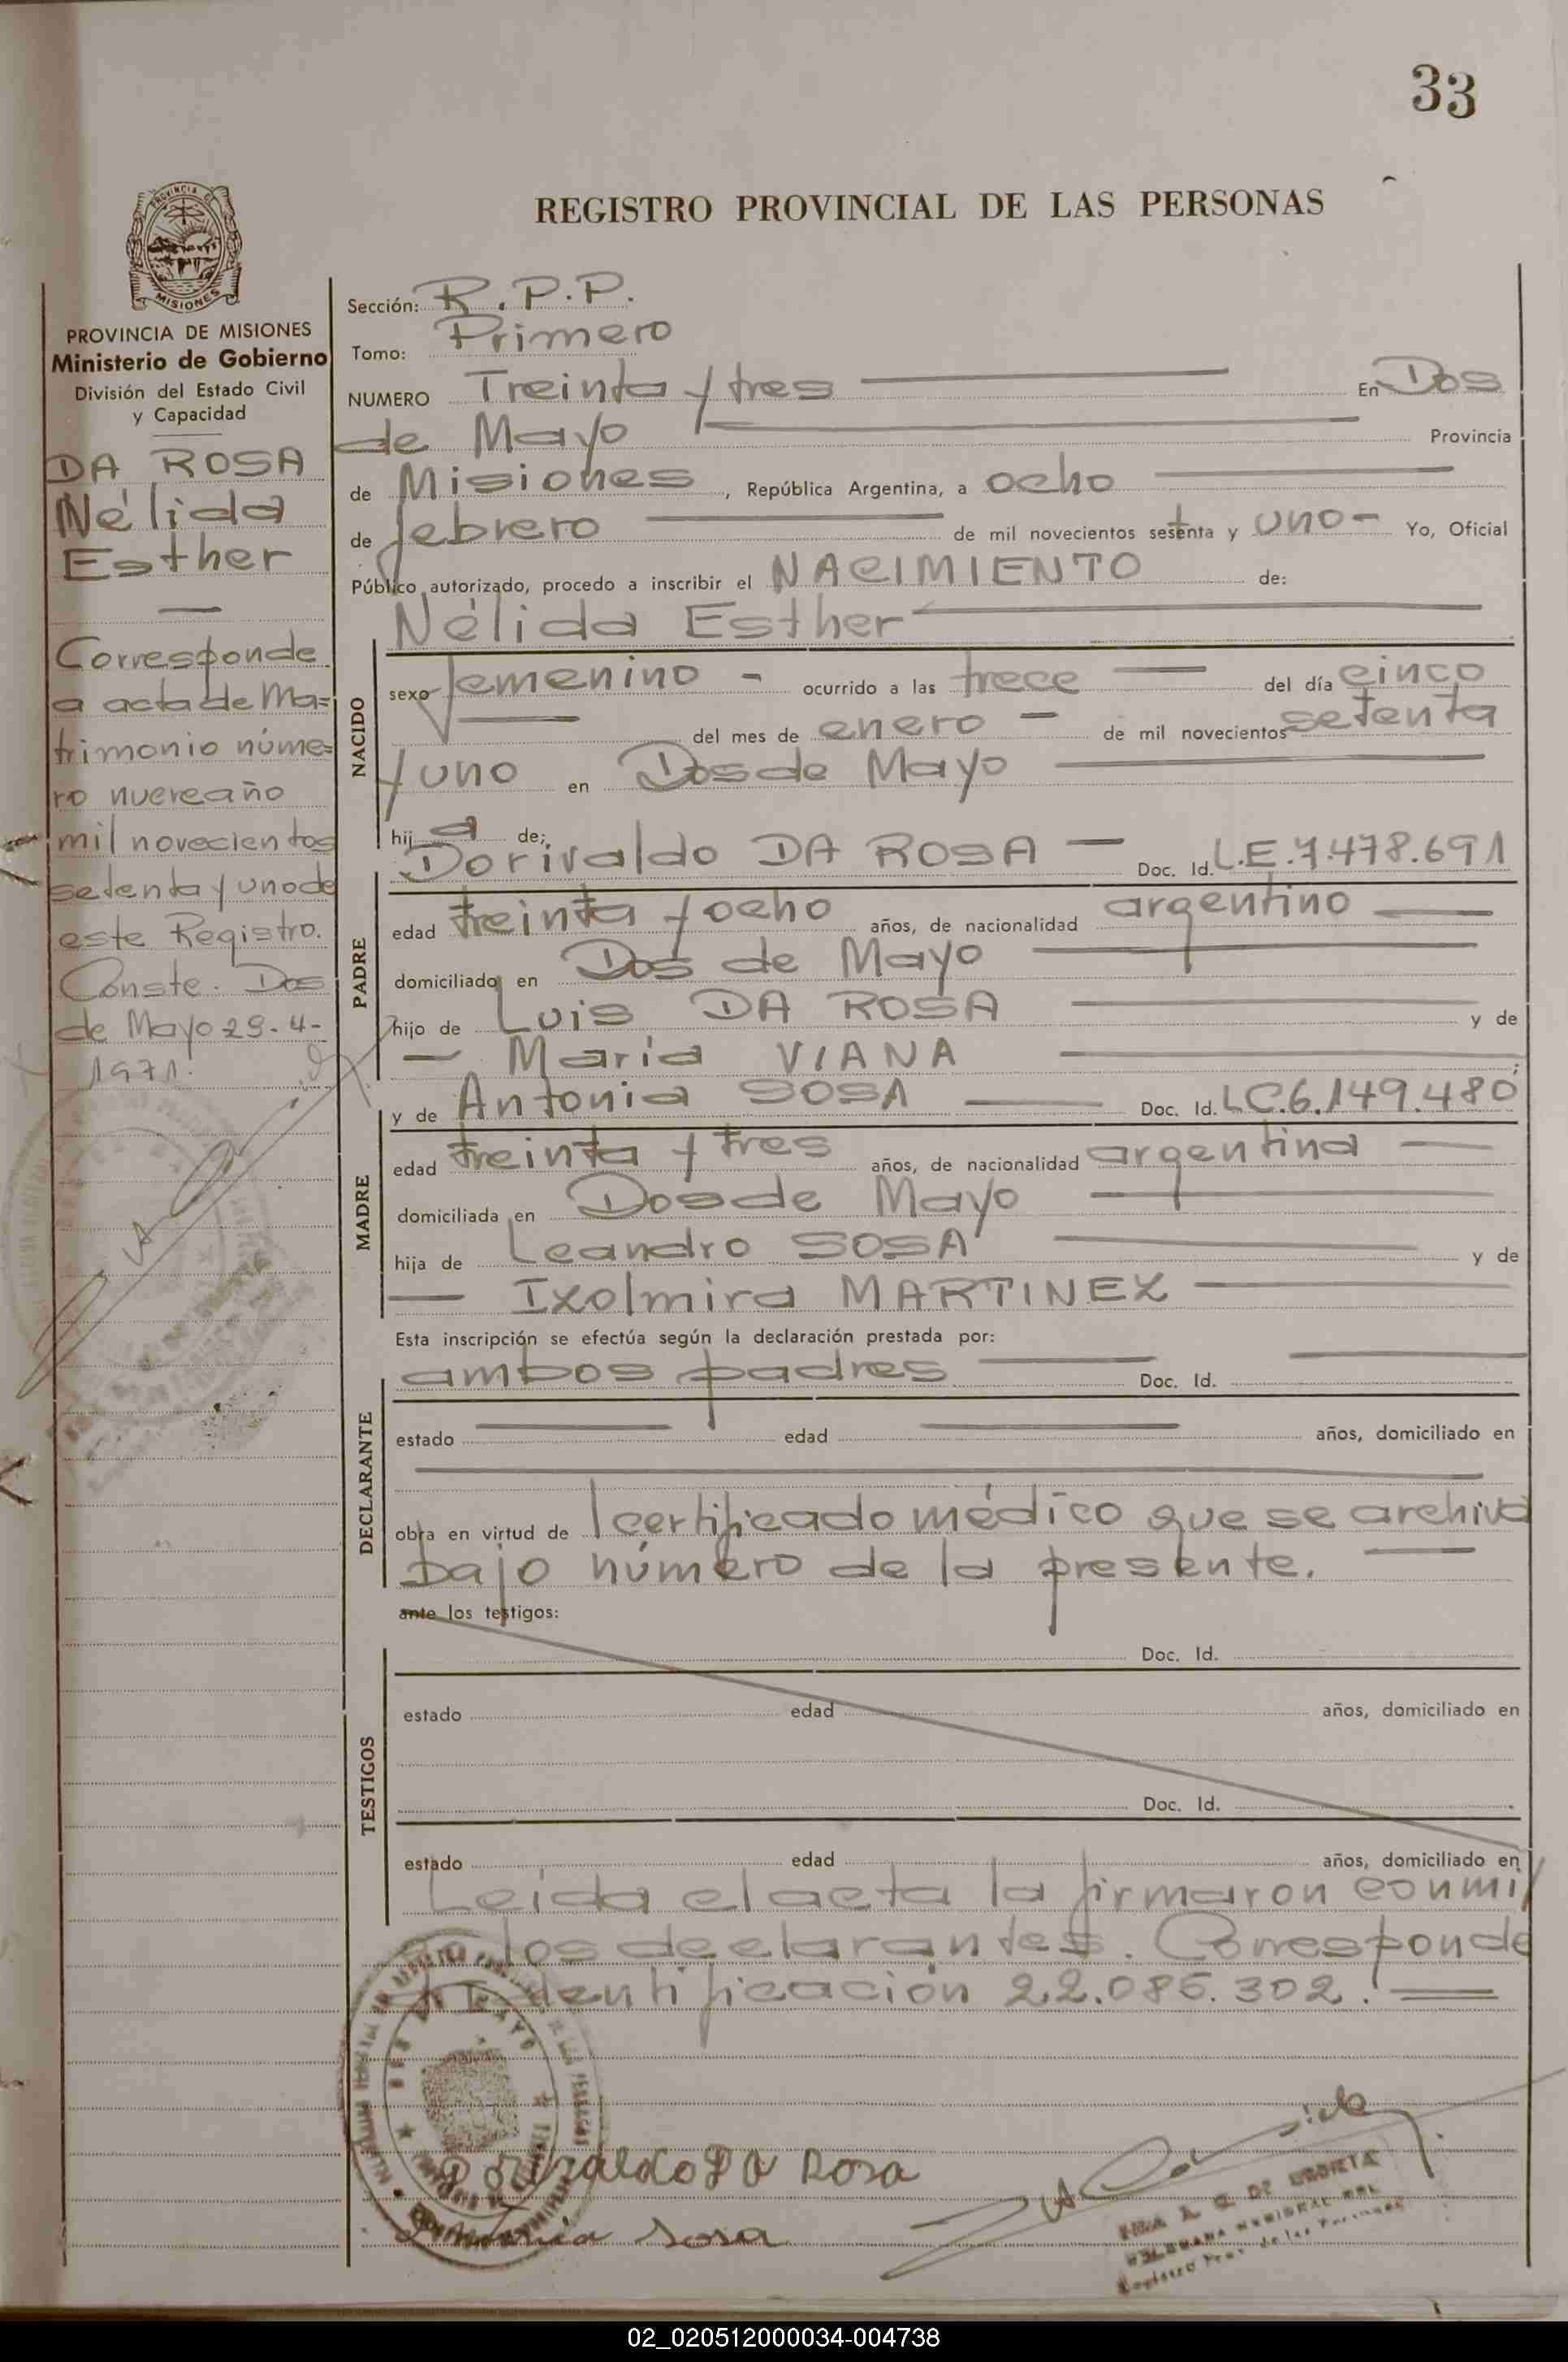 33
REGISTRO PROVINCIAL DE LAS PERSONAS
PROVINCIA
MISIONES
PROVINCIA DE MISIONES
Ministerio de Gobierno
División del Estado Civil
y Capacidad
DA ROSA
Nélida
Esther
Corresponde
a acta de Ma=
trimonio núme=
ro nueve año
mil novecientos
setenta y uno de
este Registro.
Conste. Dos
de Mayo 29-4-
1971.
Sección: R.P.P.
Tomo: Primero
NUMERO Treinta y tres En Dos
de Mayo Provincia
de Misiones, República Argentina, a ocho
de febrero de mil novecientos setenta y uno- Yo, Oficial
Público autorizado, procedo a inscribir el NACIMIENTO de:
Nélida Esther
NACIDO
sexo femenino - ocurrido a las trece del día cinco
del mes de enero - de mil novecientos setenta
y uno en Dos de Mayo
hija de:
Dorivaldo DA ROSA - Doc. Id. L.E.7.478.691
PADRE
edad treinta y ocho años, de nacionalidad argentino
domiciliado en Dos de Mayo
hijo de Luis DA ROSA y de
María VIANA
y de Antonia SOSA Doc. Id. LC.6.149.480
MADRE
edad treinta y tres años, de nacionalidad argentina
domiciliada en Dos de Mayo
hija de Leandro SOSA y de
Ixolmira MARTINEZ
Esta inscripción se efectúa según la declaración prestada por:
ambos padres Doc. Id.
DECLARANTE
estado edad años, domiciliado en
obra en virtud de certificado médico que se archiva
bajo número de la presente.
ante los testigos:
Doc. Id.
TESTIGOS
estado edad años, domiciliado en
Doc. Id.
estado edad años, domiciliado en
Leída el acta la firmaron conmi
go los declarantes. Corresponde
Identificación 22.085.302.
Dorivaldo Da Rosa
Antonia Sosa
02_020512000034-004738